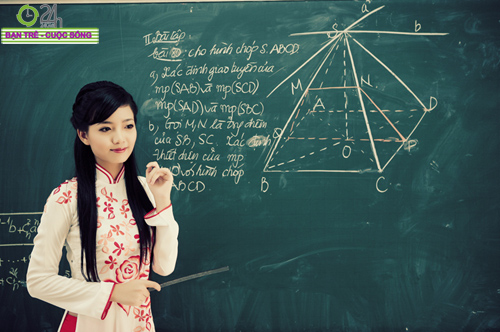 24h
.com.vn
BẠN TRẺ - CUỘC SỐNG
II Bài tập
Bài: cho hình chóp S.ABCD
a) Xác định giao tuyến của
mp(SAB) và mp(SCD)
mp(SAD) và mp(SBC)
b, Gọi M,N là trung điểm
của SB, SC. Xác định
thiết diện của mp
với hình chóp
ABCD.
a
b
S
M
N
A
D
Q
P
O
B
C